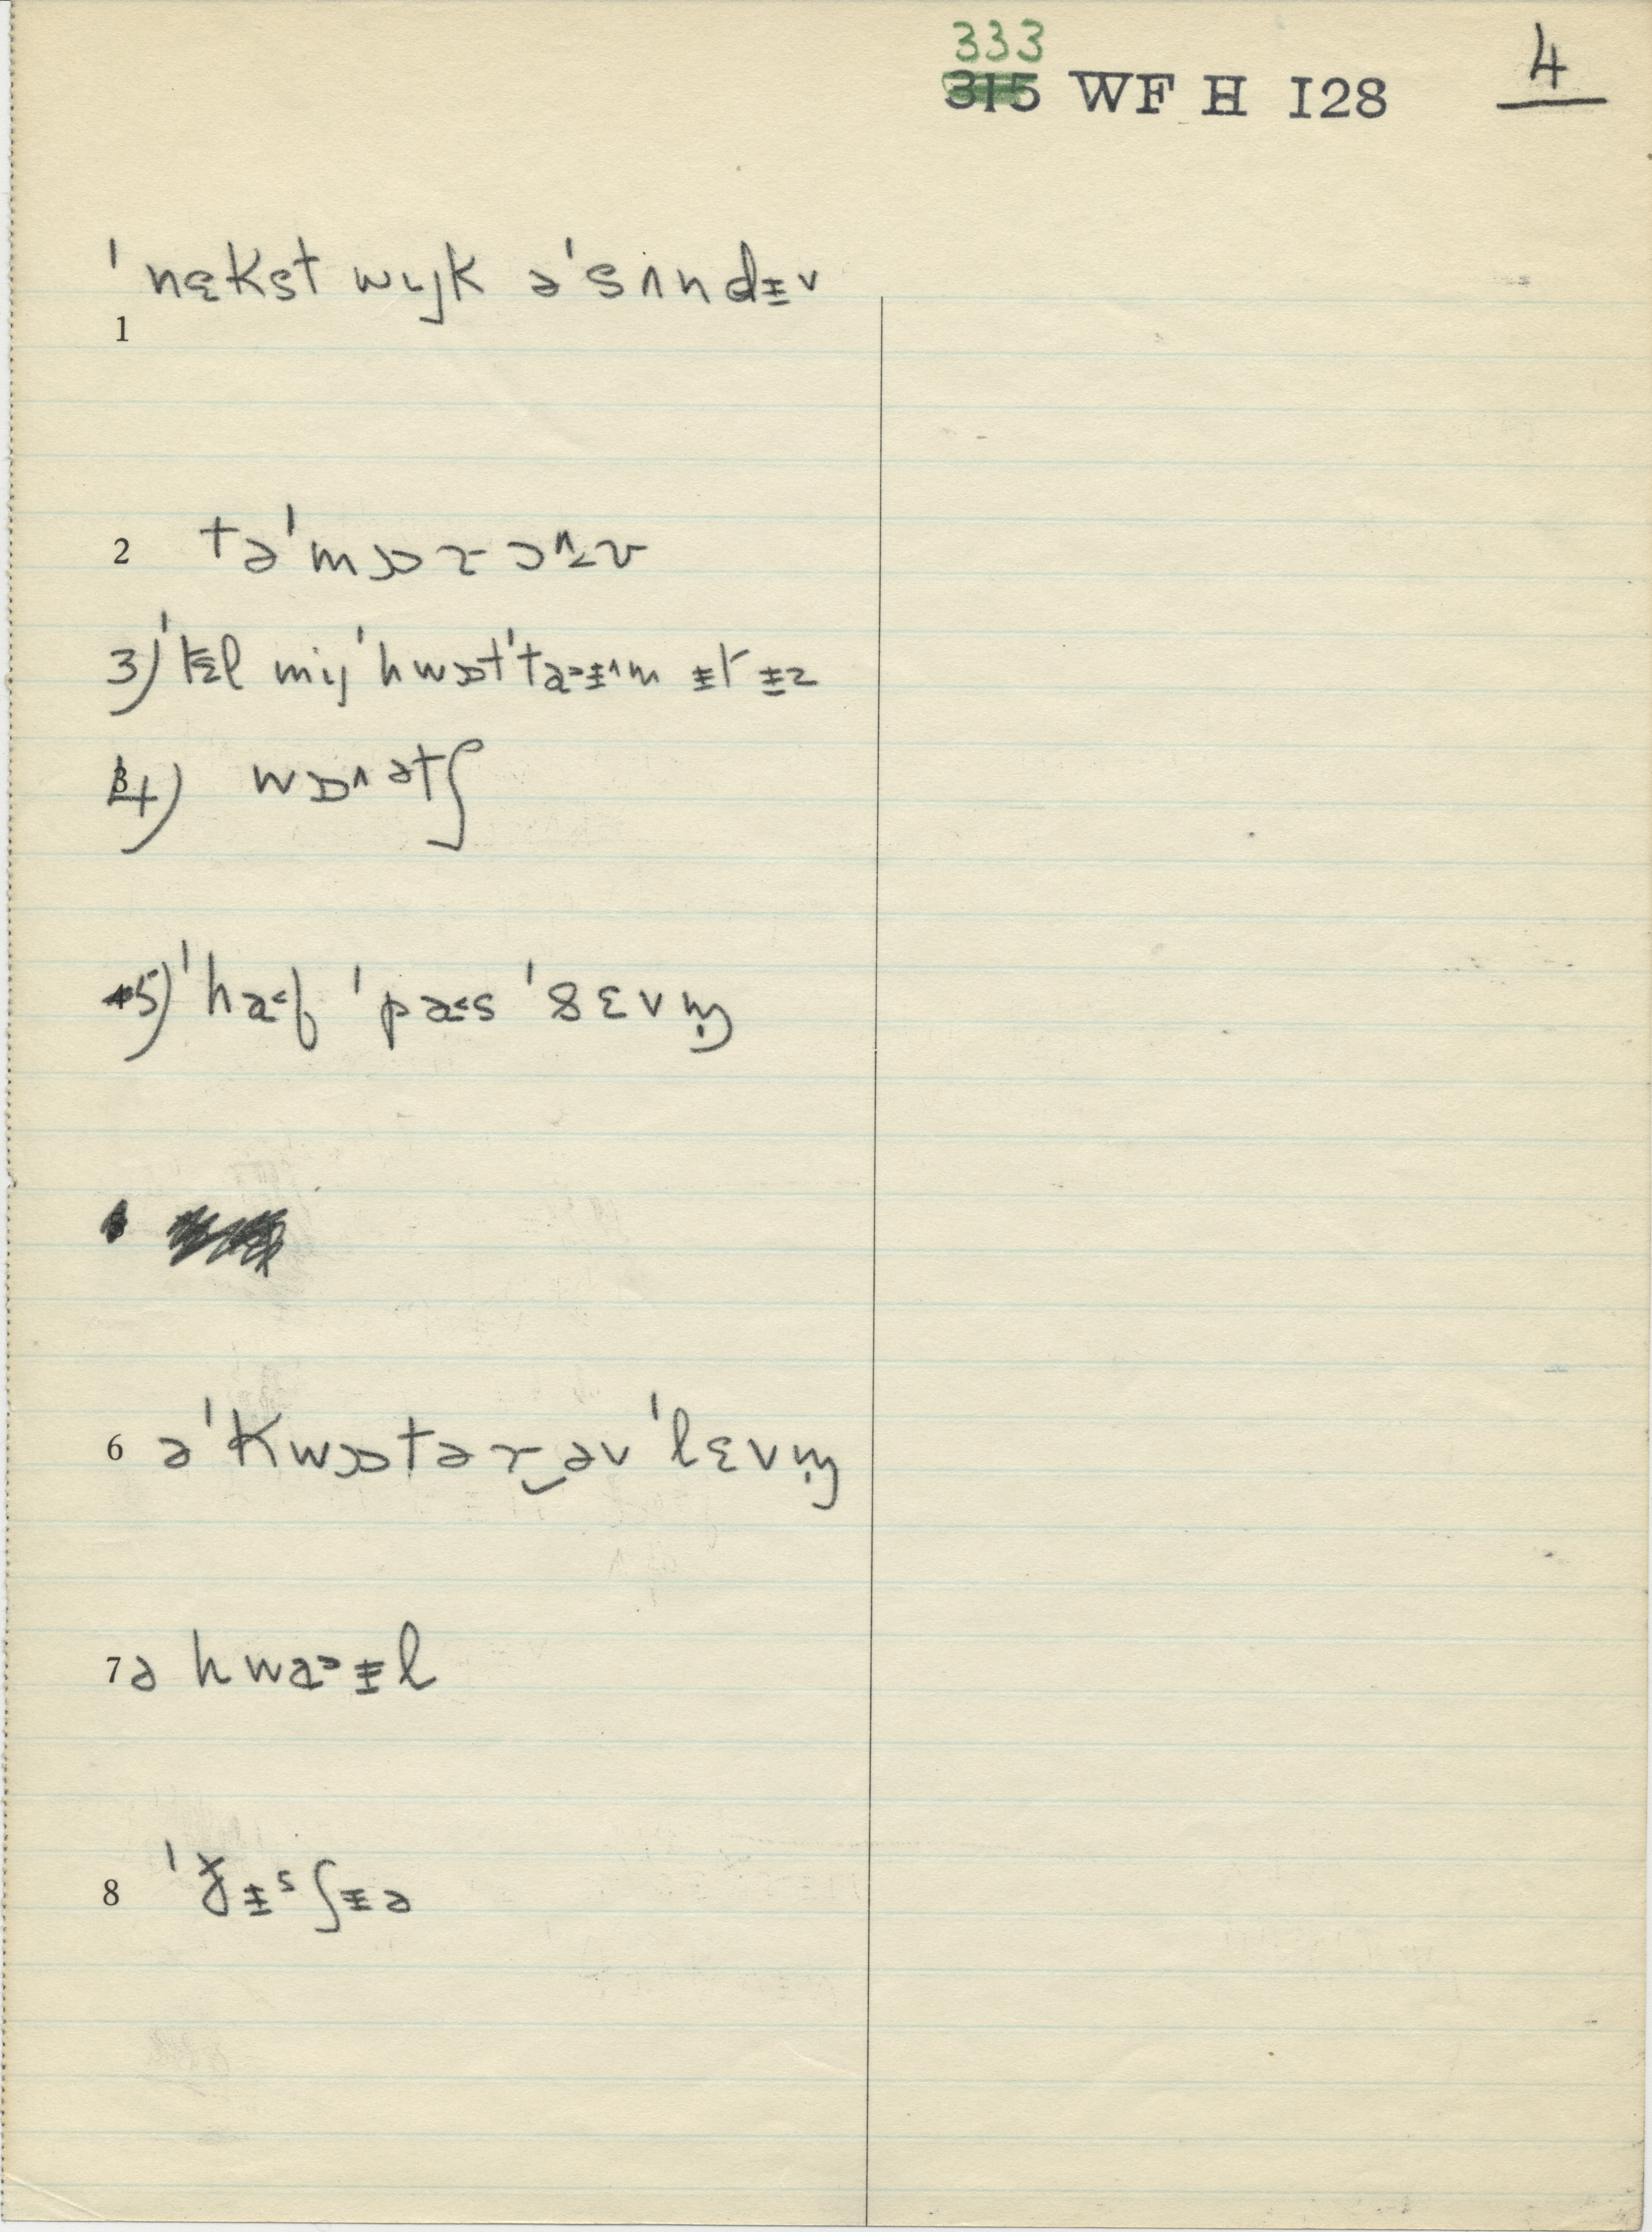 333
315 WF H I28 4
ˈnɛkst wɩjk əˈsʌndɨv
1
2 təˈmɒrɔ^zv
3) ˈtɛl mɩjˈhwɒtˈta>ɨ^m ɨt ɨz
4) wɒ^ətʃ
5) ˈha<f ˈpa<s ˈsɛvm̩
6 əˈkwɒtər‿əvˈlɛvm̩
7 ə hwa>ɨl
8 ˈɟɨsʃɨə